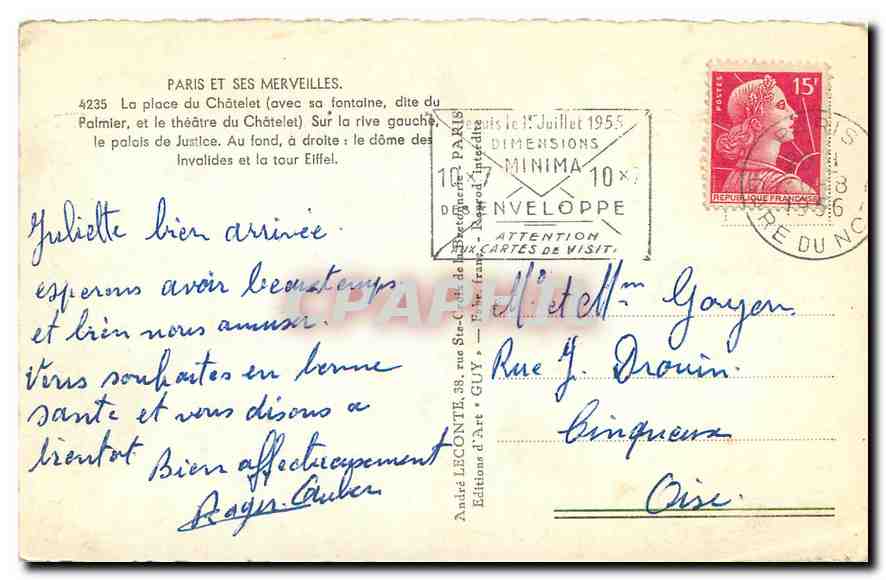 PARIS ET SES MERVEILLES.
4235 La place du Châtelet (avec sa fontaine, dite du
Palmier, et le théâtre du Châtelet) Sur la rive gauche,
le palais de Justice. Au fond, à droite : le dôme des
Invalides et la tour Eiffel.
Juliette bien arrivée.
esperons avoir beautemps
et bien nous amuser.
Vous souhaites en bonne
sante et vous disons a
bientot
Bien affectueusement
Roger
André LECONTE, 38, rue Ste-Croix de la Bretonnerie - PARIS
Editions d'Art " GUY " — Fabr. franc. - Reprod. interdite
Depuis le 1er Juillet 1955
DIMENSIONS
MINIMA
10 x 7 10 x 7
DES ENVELOPPE
ATTENTION
AUX CARTES DE VISITE
POSTES
15F
REPUBLIQUE FRANÇAISE
PARIS
8
1956
GARE DU NORD
CPAPHIL
Mr et Mme Goujon
Rue J. Drouin.
Cinqueux
Oise.